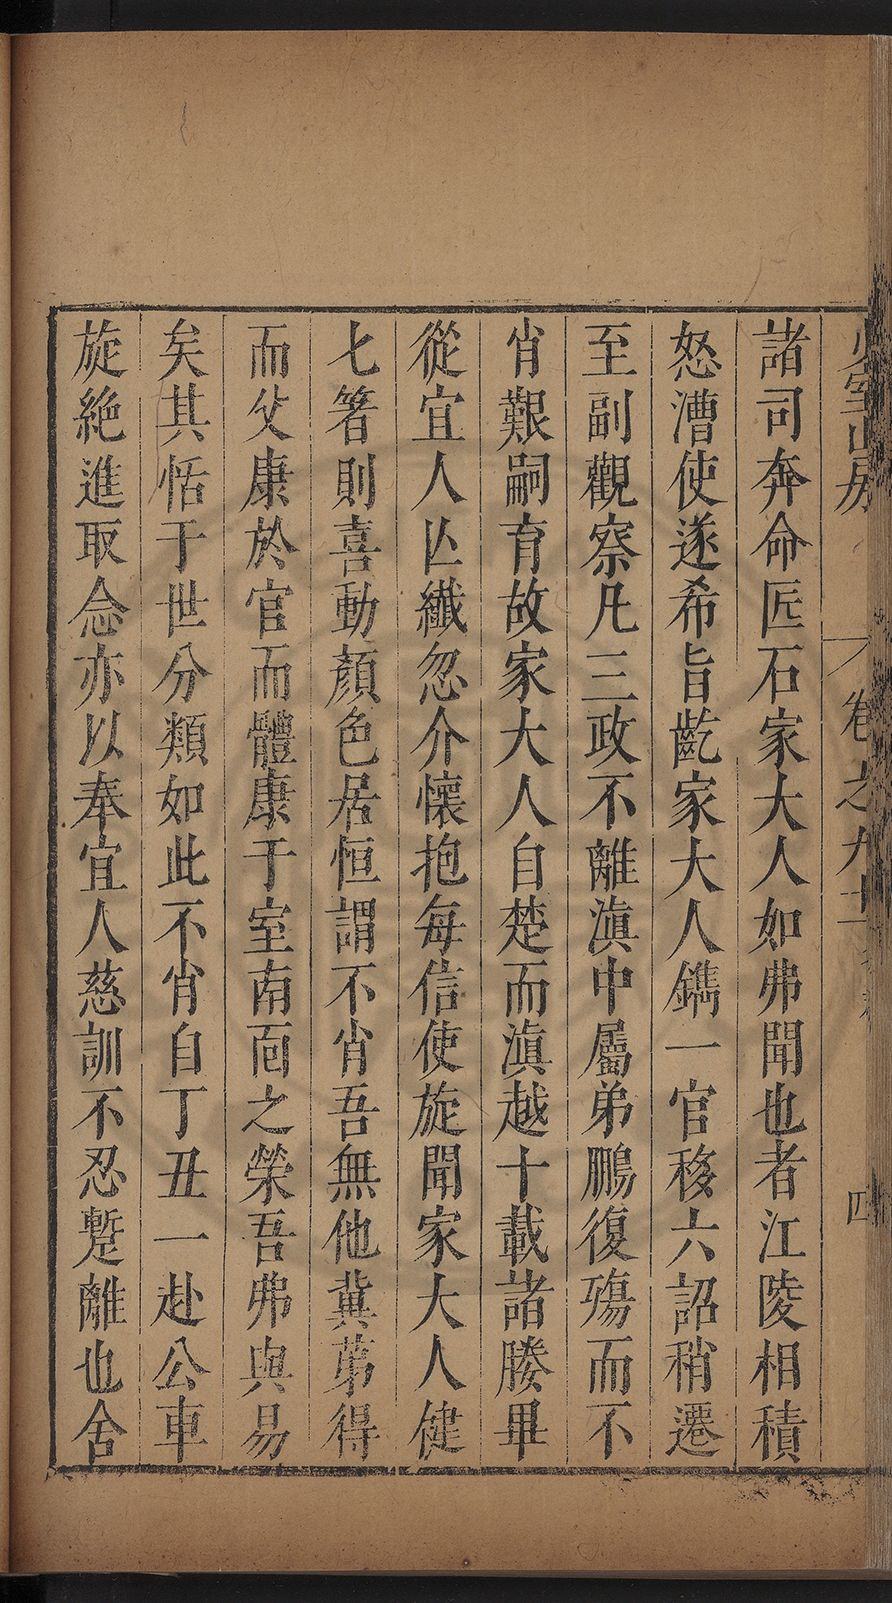 少室山房
卷之九十
四
諸司奔命匠石家大人如弗聞也者江陵相積
怒漕使遂希旨齕家大人鐫一官移六詔稍遷
至副觀察凡三政不離滇中屬弟鵬復殤而不
肖艱嗣育故家大人自楚而滇越十載諸媵畢
從宜人亾纖忽介懷抱每信使旋聞家大人健
七箸則喜動顏色居恒謂不肖吾無他冀第得
而父康於官而體康于室南面之榮吾弗與易
矣其恬于世分類如此不肖自丁丑一赴公車
旋絶進取念亦以奉宜人慈訓不忍蹔離也舍